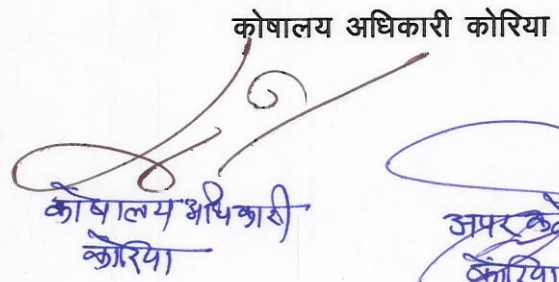 कोषालय अधिकारी कोरिया
कोषालय अधिकारी
कोरिया
अपर
कोरिया